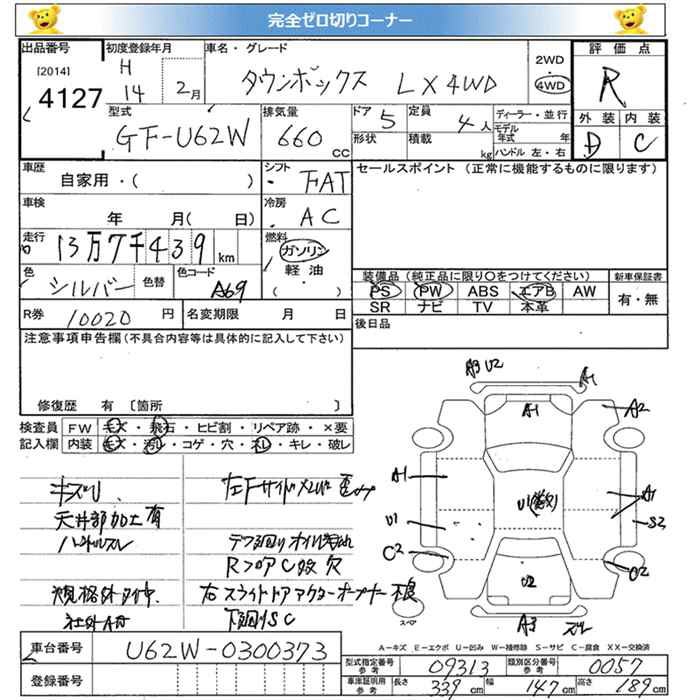 完全ゼロ切りコーナー
出品番号
[2014]
4127
初度登録年月
H
14 2月
車名・グレード
タウンボックス LX 4WD
2WD
4WD
評価点
R
外装 内装
D C
型式
GF-U62W
排気量
660 CC
ドア 5
形状
定員 4人
積載 kg
ディーラー・並行
モデル年式 年
ハンドル 左・右
車歴
自家用・( )
シフト
FAT
セールスポイント (正常に機能するものに限ります)
車検
年 月( 日)
冷房
AC
走行
13万7千439 km
燃料
ガソリン
軽油・
( )
色
シルバー
色替
色コード
A69
装備品(純正品に限り○をつけてください)
新車保証書
PS PW ABS エアB AW
SR ナビ TV 本革
有・無
R券 10020 円
名変期限 月 日
後日品
注意事項申告欄(不具合内容等は具体的に記入して下さい)
修復歴 有 〔箇所 〕
検査員
記入欄
FW キズ・飛石・ヒビ割・リペア跡・×要
内装 キズ・汚レ・コゲ・穴・スレ・キレ・破レ
キズU
天井部加工有
ハンドルスレ
規格外タイヤ
社外A有
左Fサイドメンバー歪み
デフ廻りオイル
RフロアC 欠
右スライドドアアクターオープナー不良
下廻りSC
A3 U2
A1
A1
A2
A1
U1
C2
A1
S2
C2
U2
A3
スペア
A-キズ E-エクボ U-凹み W-補修跡 S-サビ C-腐食 XX-交換済
車台番号 U62W-0300373
登録番号
型式指定番号 参考 09313
類別区分番号 参考 0057
車庫証明用 参考 長さ 339 cm 幅 147 cm 高さ 189 cm